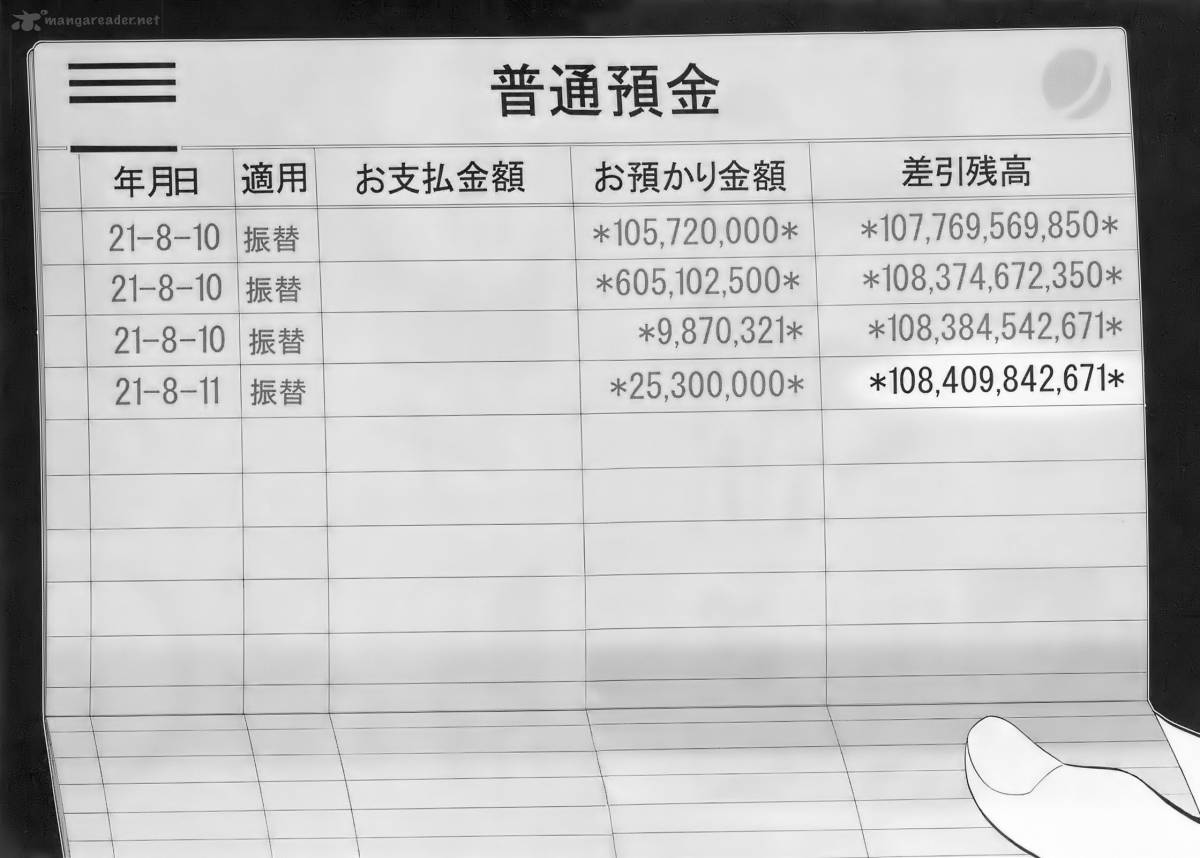 mangareader.net
普通預金
年月日 適用 お支払金額 お預かり金額 差引残高
21-8-10 振替 *105,720,000* *107,769,569,850*
21-8-10 振替 *605,102,500* *108,374,672,350*
21-8-10 振替 *9,870,321* *108,384,542,671*
21-8-11 振替 *25,300,000* *108,409,842,671*